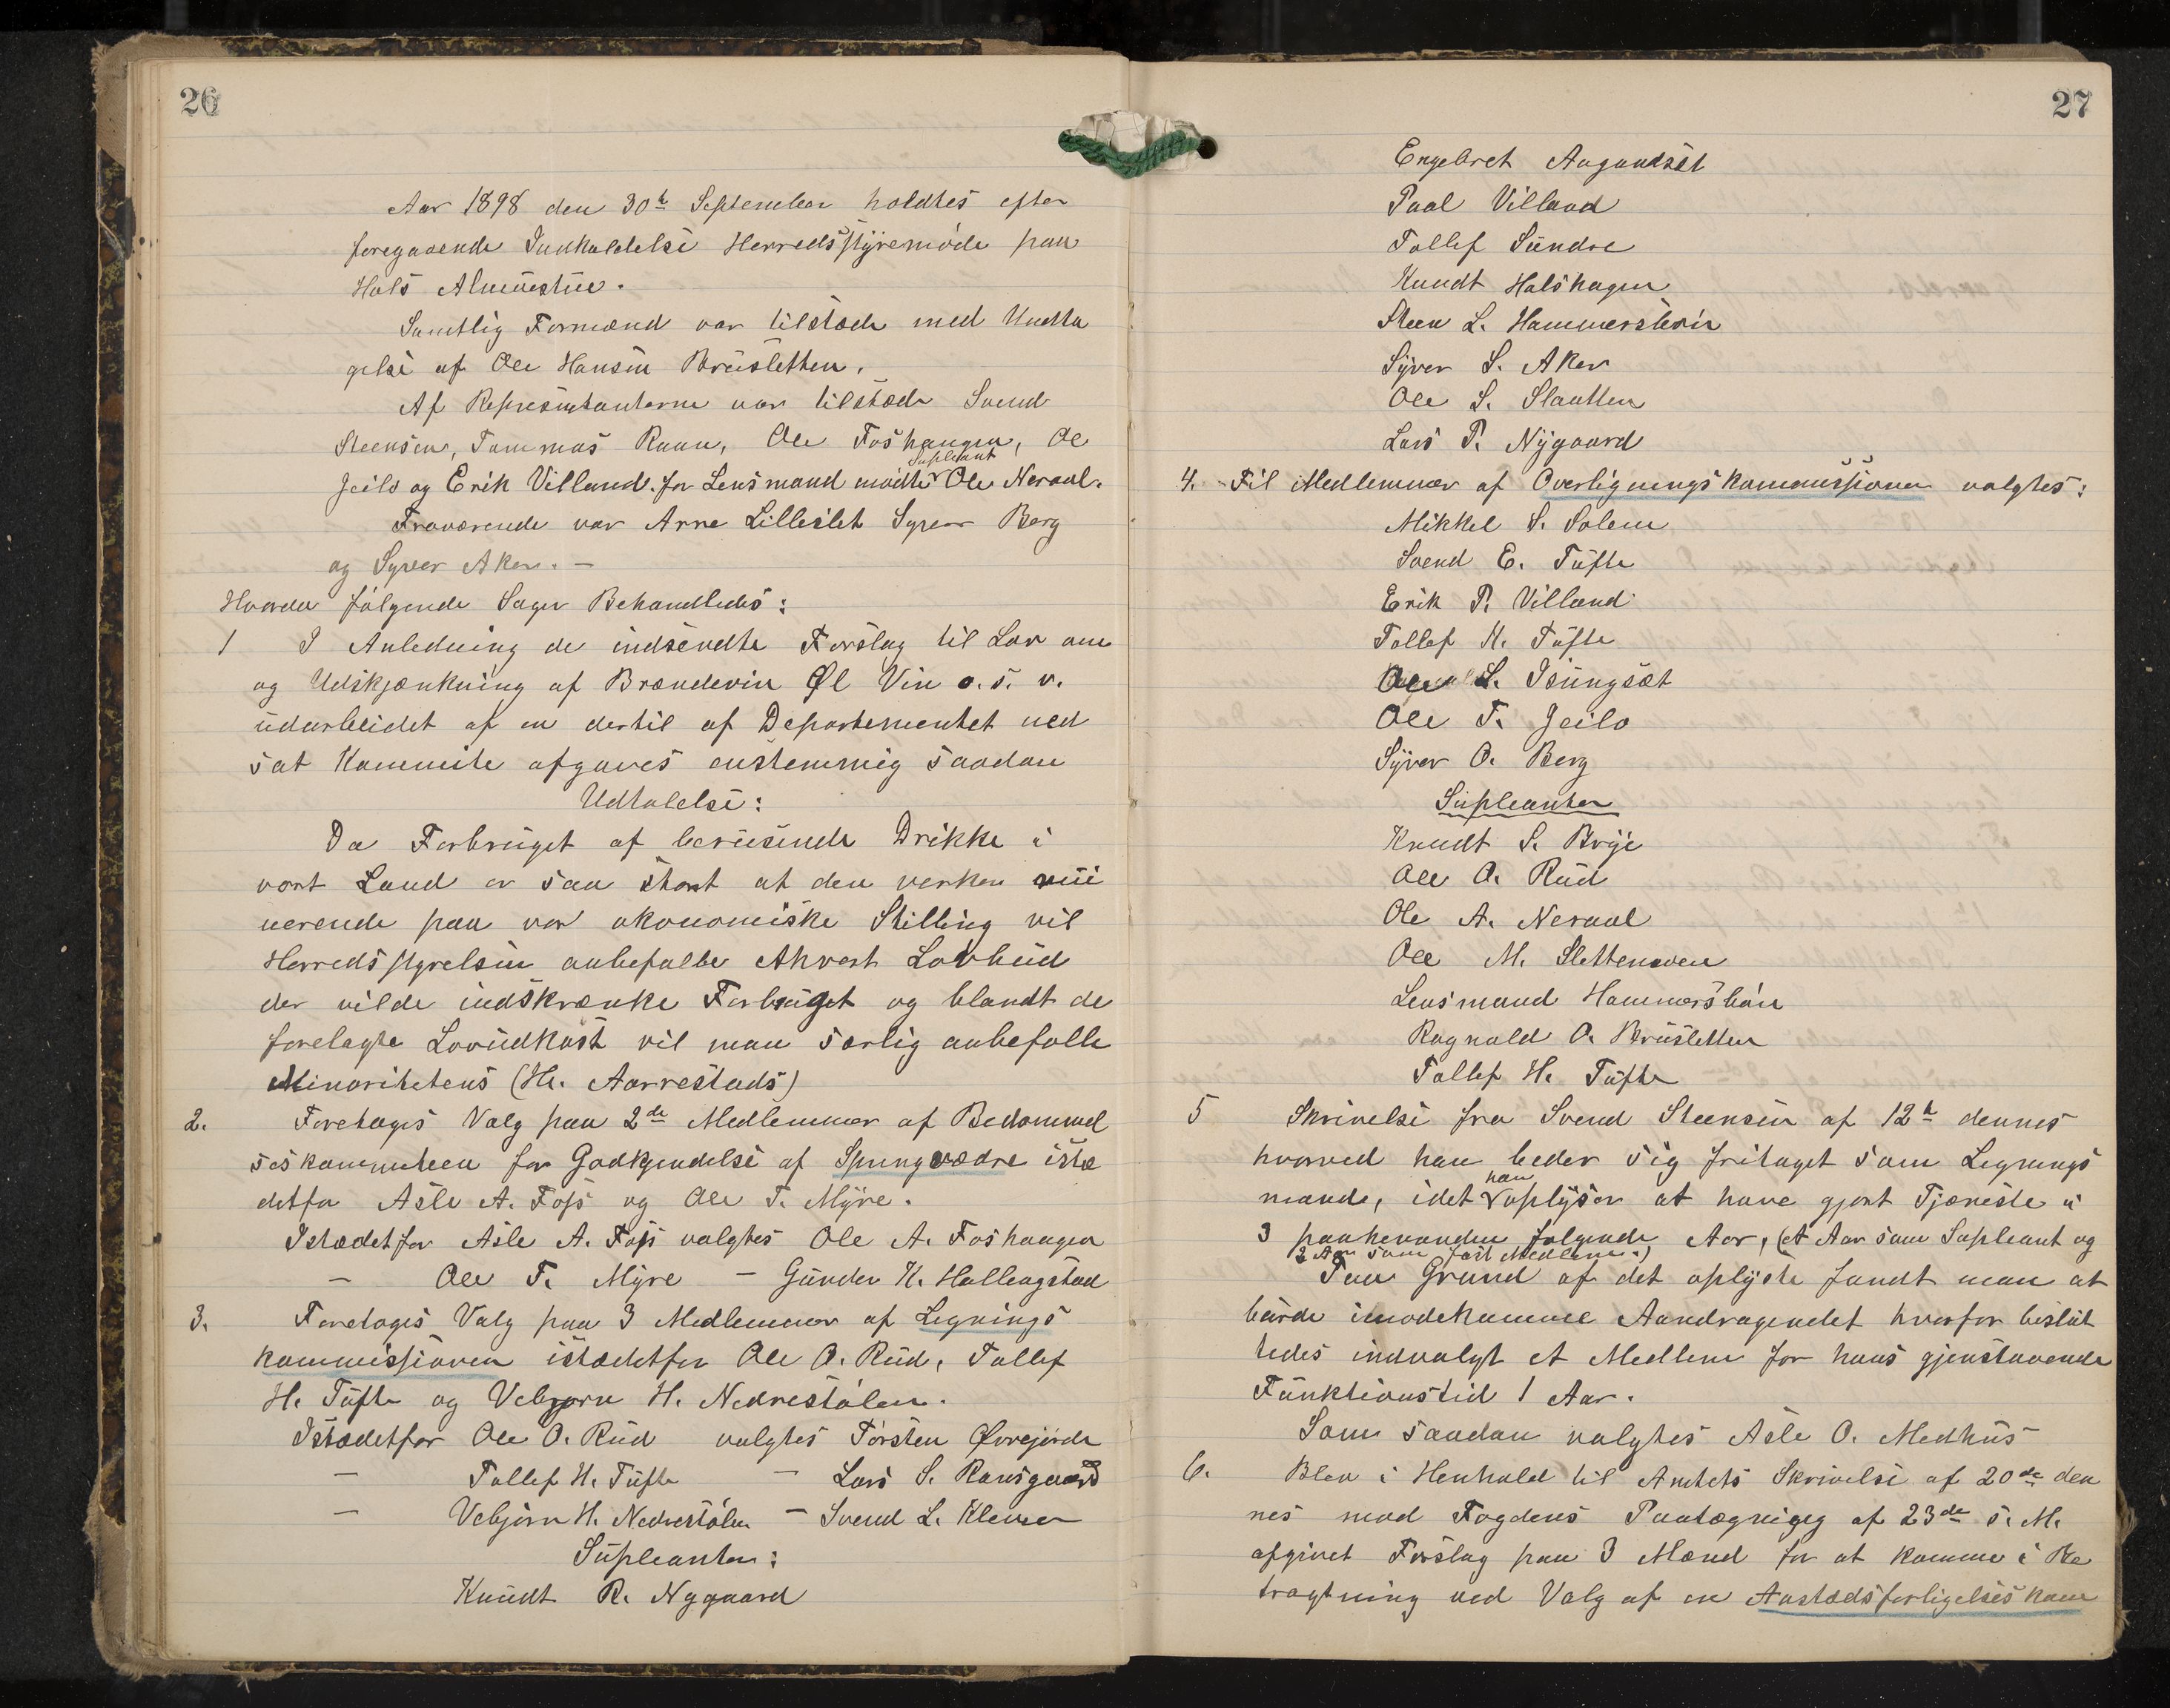 26
Aar 1898 den 30te September holdtes efter
foregaaende Innkaldelse Herredsstyremøde paa
Hols Almuestue.
Samtlig Formænd var tilstæde med Undta
gelse af Ole Hansen Bruslethen.
Af Representanterne var tilstæde Svend
Steensen, Tommas Raan, Ole Foshaugen, Ol
Supleant
Geilo og Erik Villand. for Lensmand mødte Ole Neraal.
Fraværende var Arne Lilleslet Syver Berg
og Syver Aker. —
Hvorda følgende Sager Behandledes:
1 I Anledning de indsendte Forslag til Lov om
og Udskjænkning af Brændevin Øl Vin o. s. v.
udarbeidet af en dertil af Departementet ned
sat Kommite afgaves enstemmig saadan
Udtalelse:
Da Forbruget af berusende Drikke i
vort Land er saa stort at den verker rui
nerende paa vor økonomiske Stilling vil
Herredsstyrelsen anbefalle Ethvert Lovbud
der vilde indskrænke Forbruget og blandt de
forelagte Lovudkast vil man særlig anbefalle
Minoritetens (Hr. Aarrestads)
2. Foretoges Valg paa 2de Medlemmer af Bedømmel
seskommiteen for Godkjendelse af Springvædre istæ
detfor Asle A. Foss og Ole T. Myre.
Istædetfor Asle A. Foss valgtes Ole A. Foshaugen
— Ole T. Myre — Gunder K. Hallengstad
3. Foretoges Valg paa 3 Medlemmer af Legnings
kommissionen istædetfor Ole O. Rud, Tollef
H. Tufte og Vebjørn H. Nedrestølen.
Istædetfor Ole O. Rud valgtes Torsten Øvrejorde
— Tollef H. Tufte — Lars S. Ransgaard
— Vebjørn H. Nedrestølen — Svend L. Klemer
Supleanter:
Knudt R. Nygaard
27
Engebret Aagundset
Paal Villand
Tollef Sundre
Knudt Halshagen
Steen L. Hammersbøin
Syver S. Aker
Ole S. Slaatten
Lars P. Nygaard
4. Til Medlemmer af Overligningskommissionen valgtes:
Mikkel S. Solem
Svend E. Tufte
Erik P. Villand
Tollef K. Tufte
Ole L. Isungset
Ole T. Geilo
Syver O. Berg
Supleanter
Knudt S. Brye
Ole O. Rud
Ole A. Neraal
Ole M. Slettemoen
Lensmand Hammersbøin
Ragnald O. Bruslethen
Tollef H. Tufte
5 Skrivelse fra Svend Steensen af 12te dennes
hvorved han beder sig fritaget som Legnings
han
mand, idet oplyser at have gjort Tjæneste i
3 paahverandre følgende Aar, (et Aar som Supleant og
2 Aar som fast Medlem.)
Paa Grund af det oplyste fandt man at
burde imødekomme Aandragendet hvorfor beslut
tedes indvalgt et Medlem for hans gjenstaaende
Funktionstid 1 Aar.
Som saadan valgtes Asle O. Medhus
6. Blev i Henhold til Amtets Skrivelse af 20de den
nes med Fogdens Paategnigg af 23de s. M.
afgivet Forslag paa 3 Mænd for at komme i Be
tragtning ved Valg af en Aastædsforligelseskom